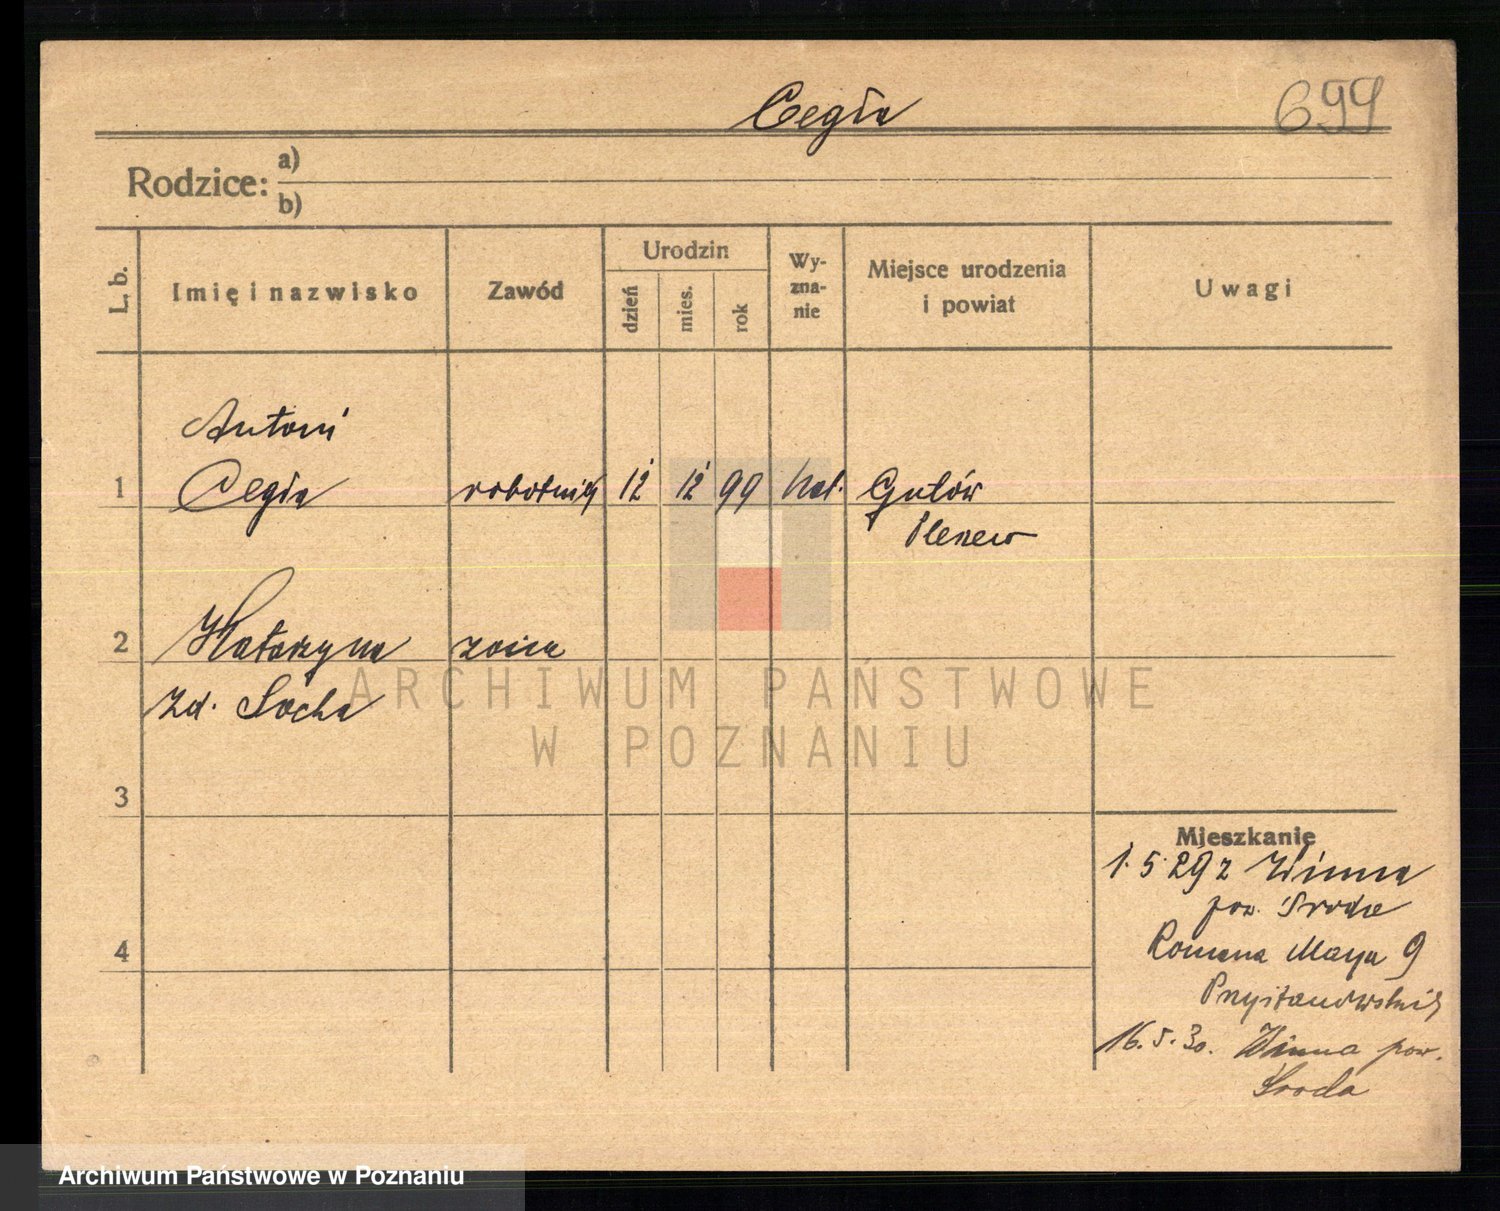 Cegła
699
Rodzice: a)
b)
L. b.
Imię i nazwisko
Zawód
Urodzin
dzień
mies.
rok
Wy-
zna-
nie
Miejsce urodzenia
i powiat
Uwagi
Antoni
1 Cegła robotnik 12 12 99 kat. Gutów
Pleszew
2 Katarzyna żona
zd. Socha
3
Mieszkanie
1.5.29 z Winna
pow. Środa
Romana Maya 9
16.5.30. Winna pow.
Środa
4
ARCHIWUM PAŃSTWOWE
W POZNANIU
Archiwum Państwowe w Poznaniu